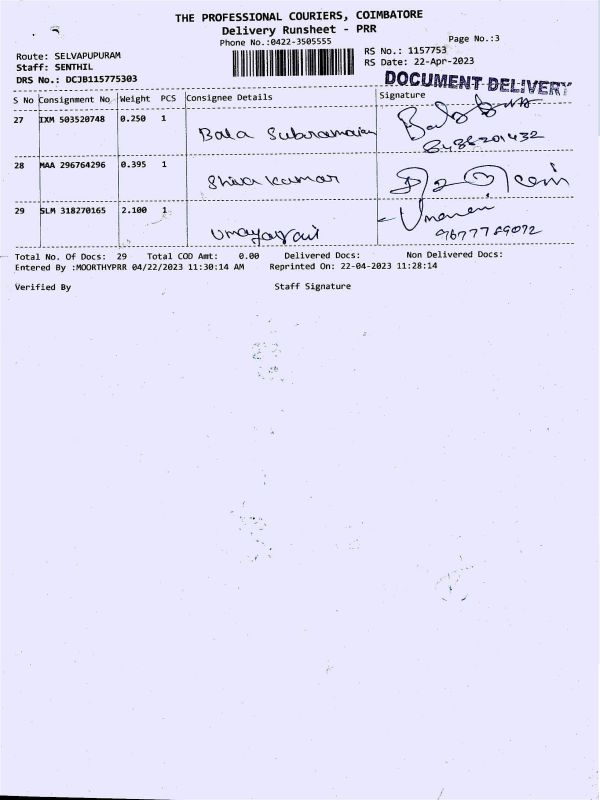 THE PROFESSIONAL COURIERS, COIMBATORE
Delivery Runsheet - PRR
Phone No.:0422-3505555
Page No.:3
Route: SELVAPUPURAM
Staff: SENTHIL
DRS No.: DCJB115775303
RS No.: 1157753
RS Date: 22-Apr-2023
DOCUMENT DELIVERY
S No Consignment No Weight PCS Consignee Details Signature
27 IXM 503520748 0.250 1 Bala Subramanian
8486201432
28 MAA 296764296 0.395 1 Shiva kumar
29 SLM 318270165 2.100 1 Umayarani
9677789072
Total No. Of Docs: 29 Total COD Amt: 0.00 Delivered Docs: Non Delivered Docs:
Entered By :MOORTHYPRR 04/22/2023 11:30:14 AM Reprinted On: 22-04-2023 11:28:14
Verified By Staff Signature